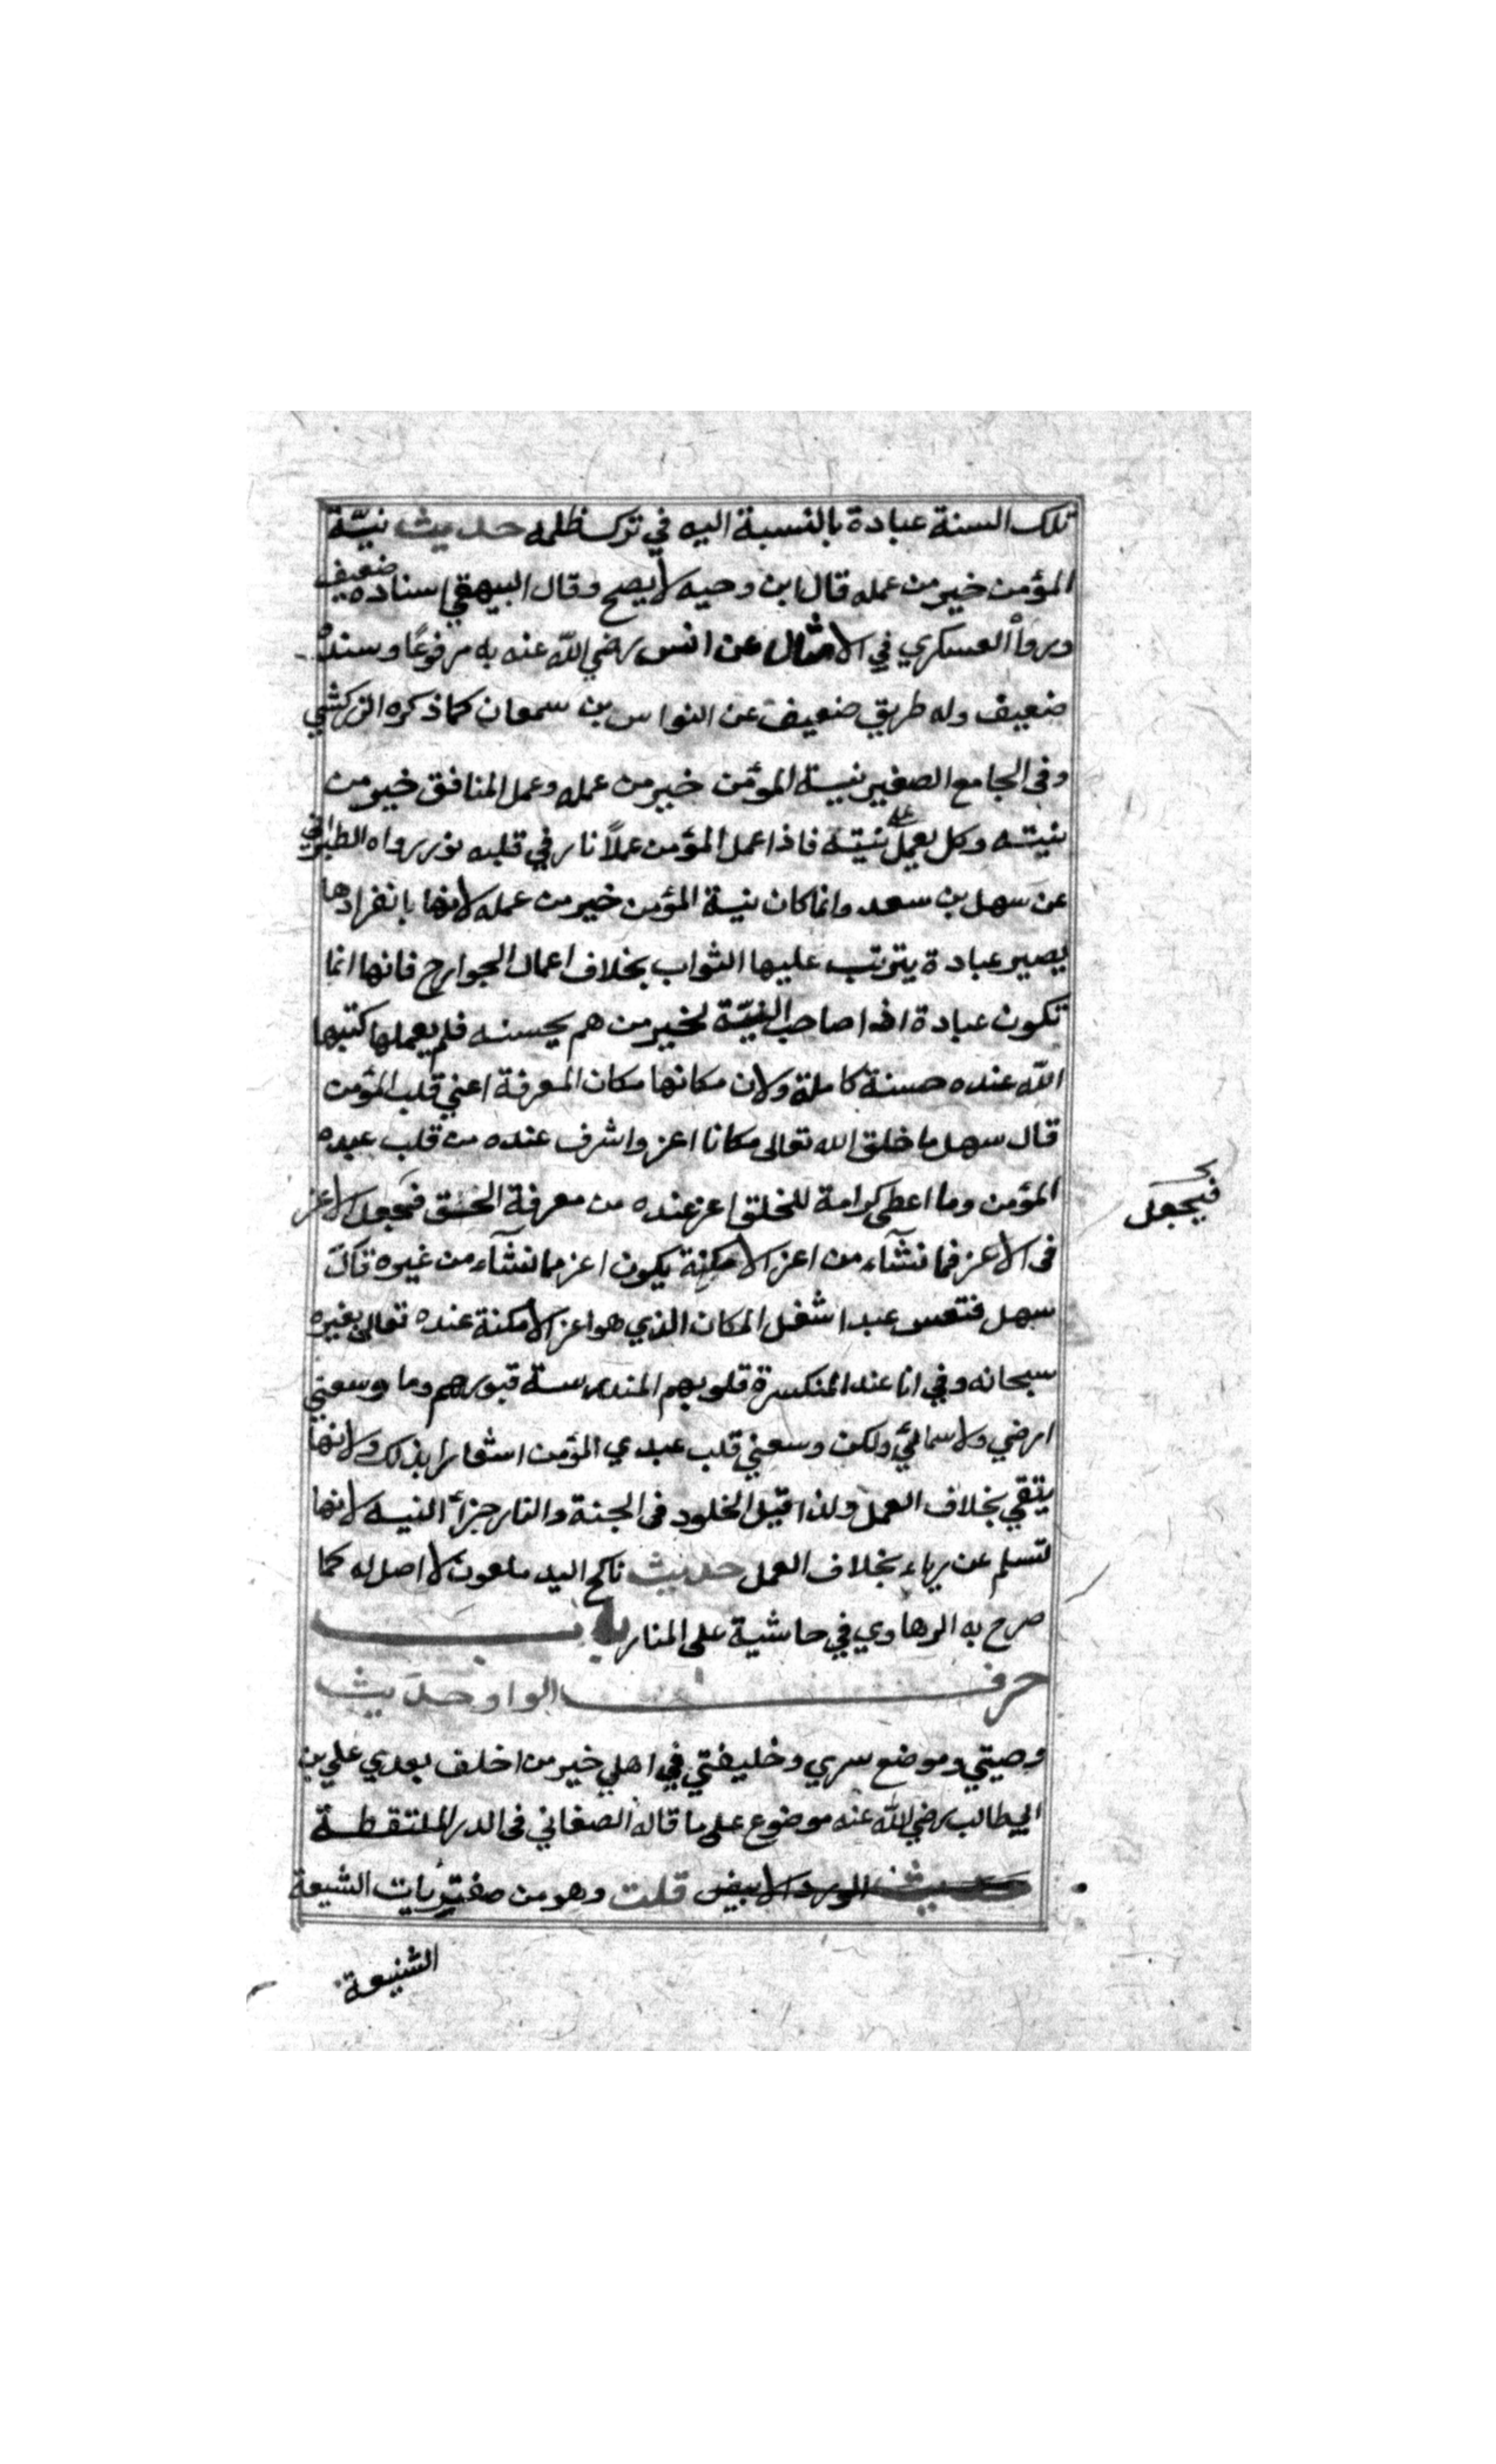 تلك السنة عبادة بالنسبة اليه في ترك ظلمه حديث نيّة
المؤمن خير من عمله قال ابن دحيه لا يصح وقال البيهقي اسناده ضعيف
ورواه العسكري في الامثال عن انس رضي الله عنه به مرفوعًا وسنده
ضعيف وله طريق ضعيف عن النواس بن سمعان كما ذكره الزركشي
وفى الجامع الصغير نية المؤمن خير من عمله وعمل المنافق خير من
نيته وكل يعمل على نيته فاذا عمل المؤمن عملاً نار في قلبه نور رواه الطبراني
عن سهل بن سعد وانما كان نية المؤمن خير من عمله لانها بانفرادها
يصير عبادة يترتب عليها الثواب بخلاف اعمال الجوارح فانها انما
تكون عبادة اذا صاحب النيّة لخبر من هم بحسنه فلم يعملها كتبها
الله عنده حسنة كاملة ولان مكانها مكان المعرفة اعني قلب المؤمن
قال سهل ما خلق الله تعالى مكانا اعز واشرف عنده من قلب عبده
المؤمن وما اعطى كرامة للخلق اعز عنده من معرفة الحق فجعل الاعز
فيجعل
فى الاعز فما نشآء من اعز الامكنة يكون اعز مما نشآء من غيره قال
سهل فتعس عبدا شغل المكان الذي هو اعز الامكنة عنده تعالى بغيره
سبحانه وفي انا عند المنكسرة قلوبهم المندرسة قبورهم وما وسعني
ارضي ولا سمائي ولكن وسعني قلب عبدي المؤمن اشعارا بذلك ولانها
يتقي بخلاف العمل ولذا قيل الخلود فى الجنة والنار جزأ النيه لانها
تسلم عن رياء بخلاف العمل حديث ناكح اليد ملعون لا اصل له كما
صرح به الرهاوي في حاشية على المنار باب
حرف الواو حديث
وصيتي وموضع سري وخليفتي في اهلي خير من اخلف بعدي علي بن
ابي طالب رضي الله عنه موضوع على ما قاله الصغاني فى الدر الملتقطة
حديث الورد الابيض قلت وهو من مفتريات الشيعة
الشنيعة